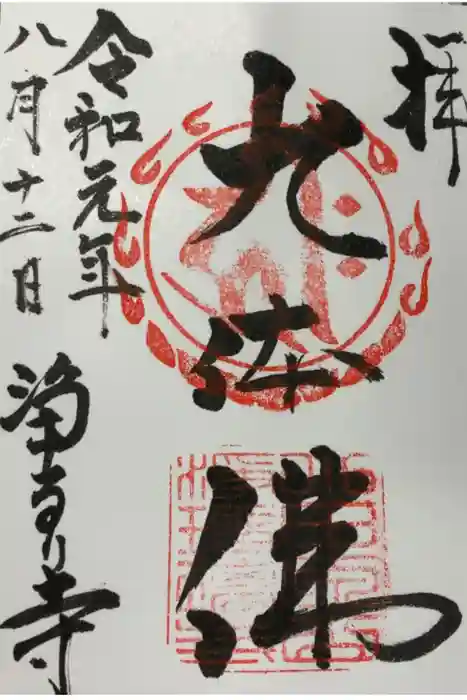 拝
九体佛
令和元年
八月十二日
浄るり寺